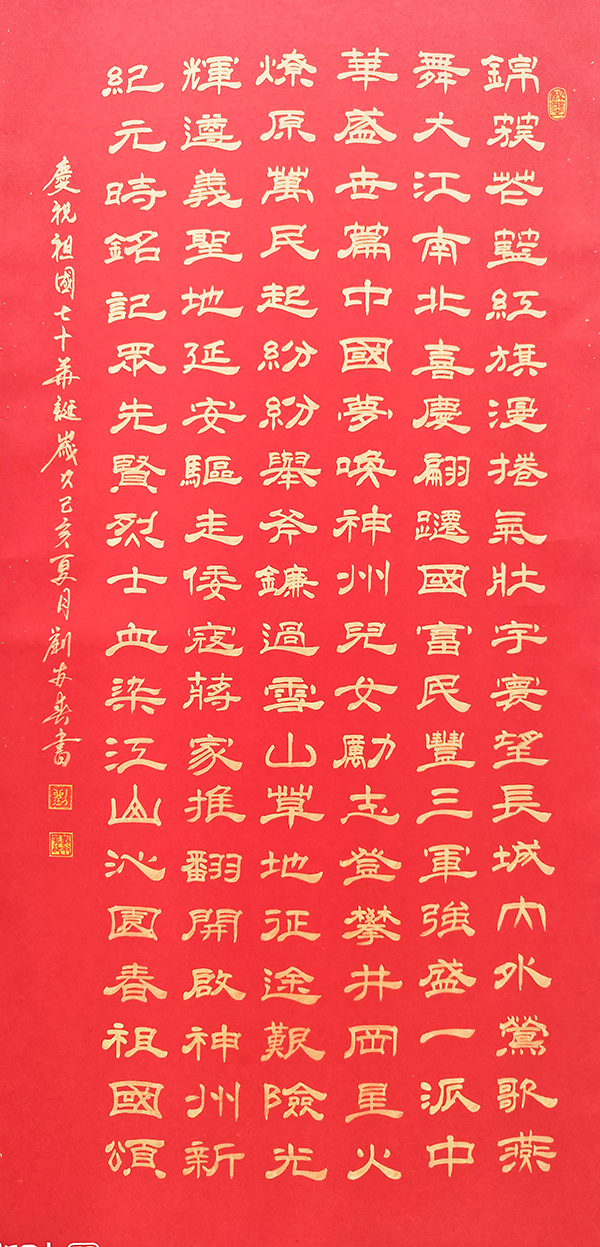 錦簇花籃紅旗漫捲氣壯宇寰望長城內外鶯歌燕
舞大江南北喜慶翩躚國富民豐三軍強盛一派中
華盛世篇中國夢喚神州兒女勵志登攀井岡星火
燎原萬民起紛紛舉斧鐮過雪山草地征途艱險光
輝遵義聖地延安驅走倭寇蔣家推翻開啟神州新
紀元時銘記眾先賢烈士血染江山沁園春祖國頌
慶祝祖國七十華誕歲次己亥夏月劉春書
劉